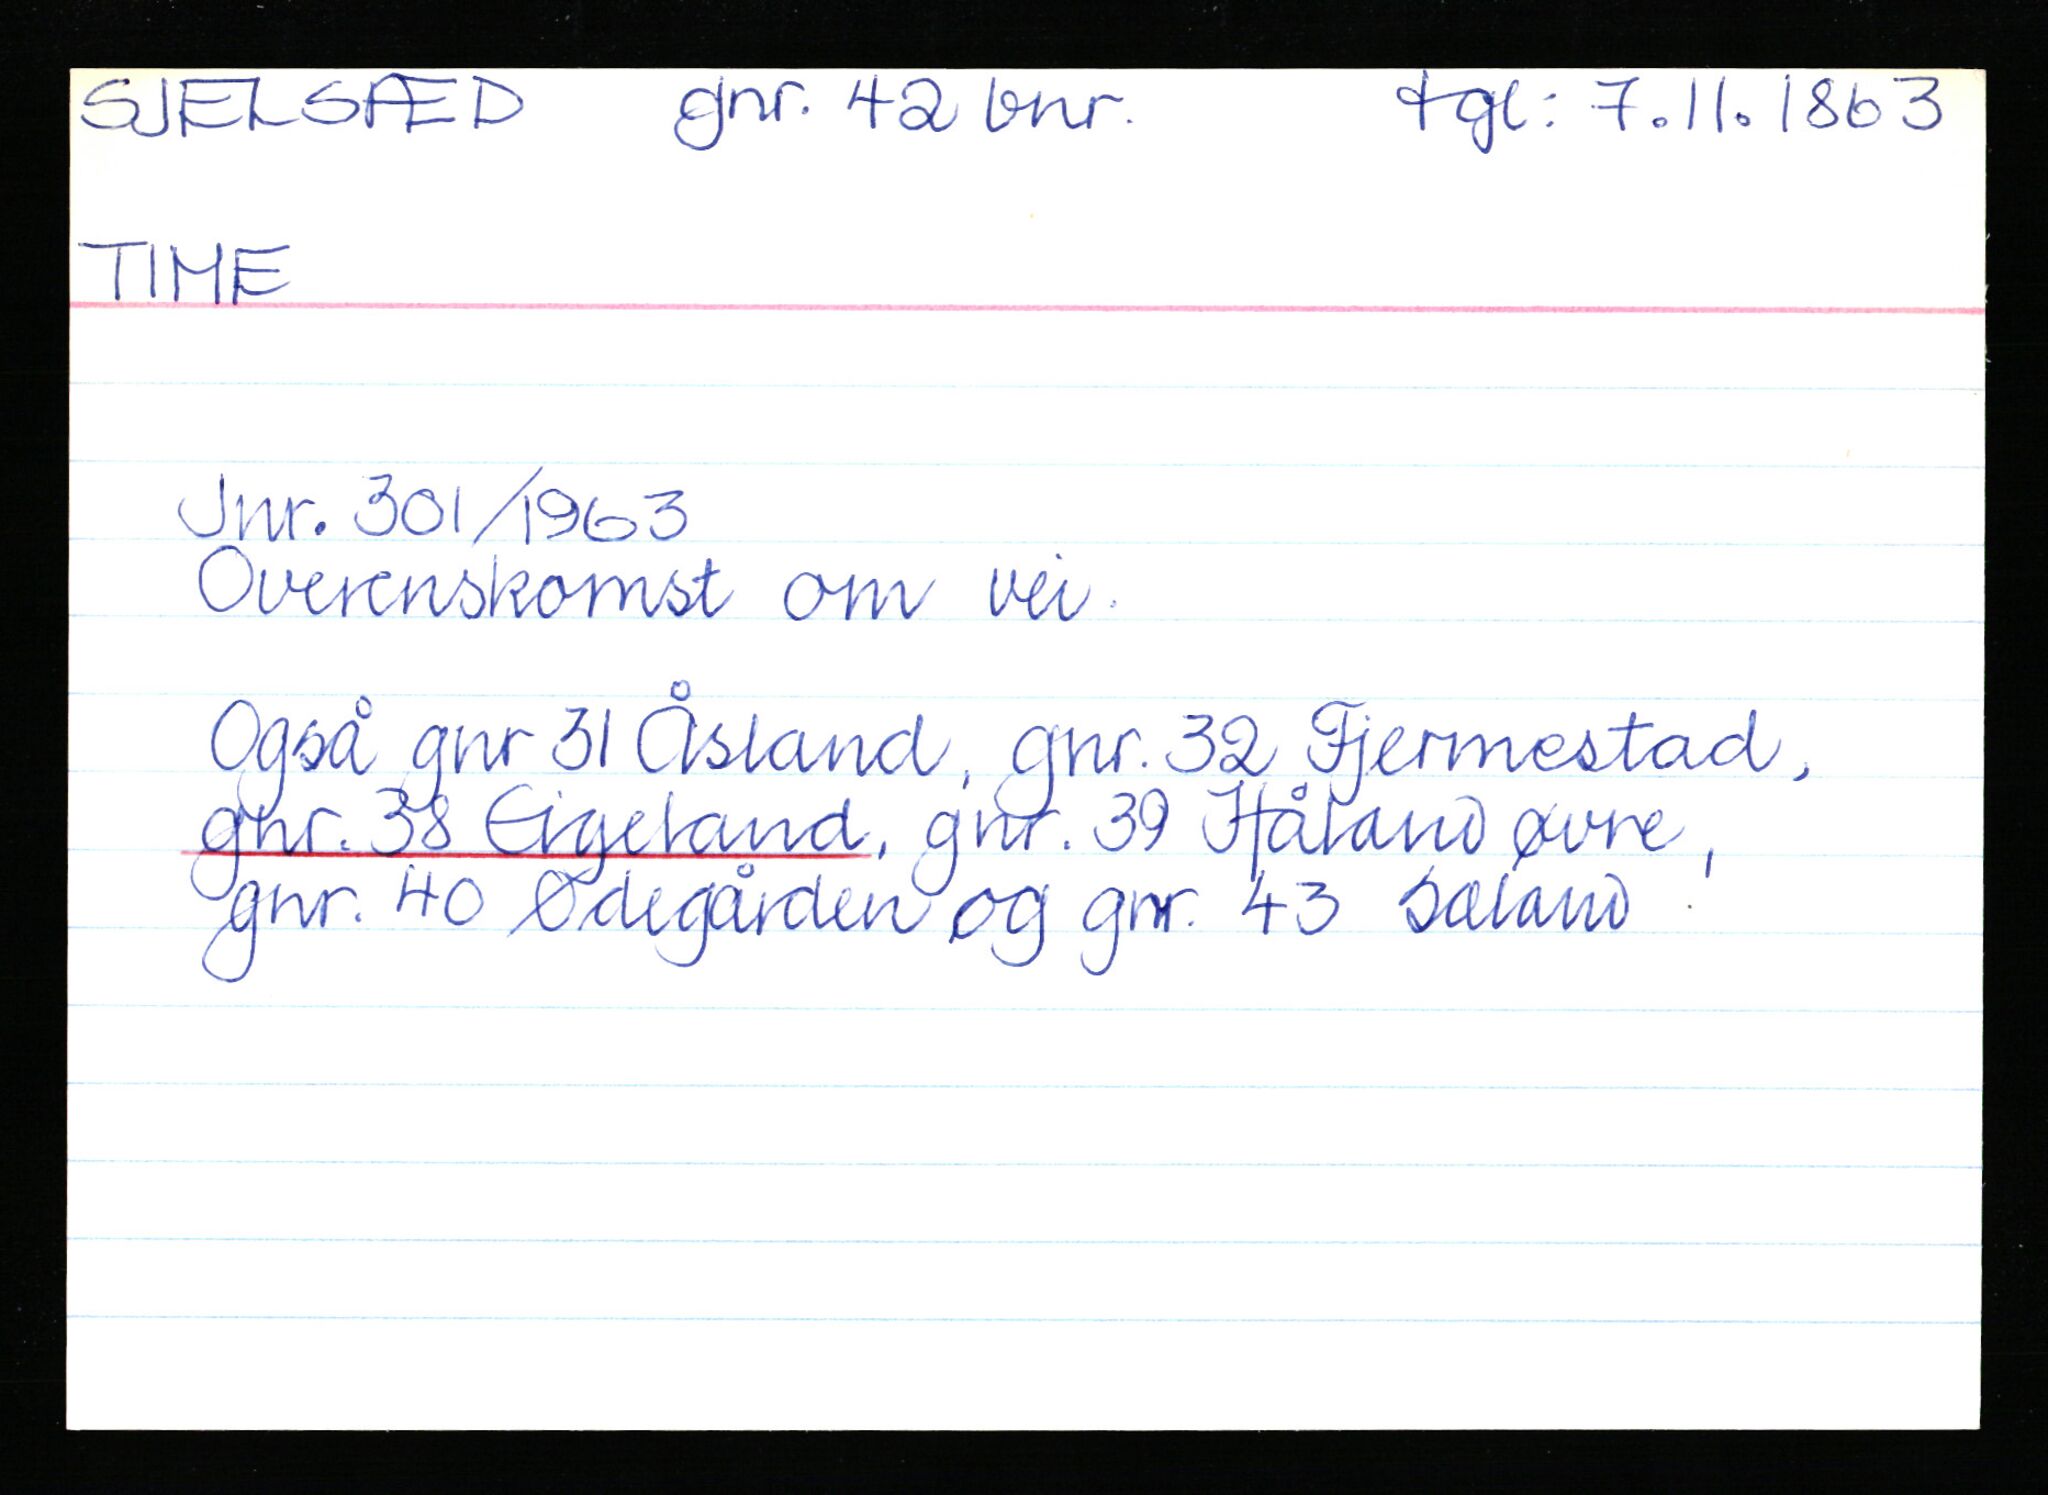 SJELSÆD gnr. 42 bnr. tgl: 7.11.1863
TIME
Jnr. 301/1963
Overenskomst om vei.
Også gnr 31 Åsland, gnr. 32 Fjermestad,
gnr. 38 Eigeland, gnr. 39 Håland øvre,
gnr. 40 Ødegården og gnr. 43 Sæland.